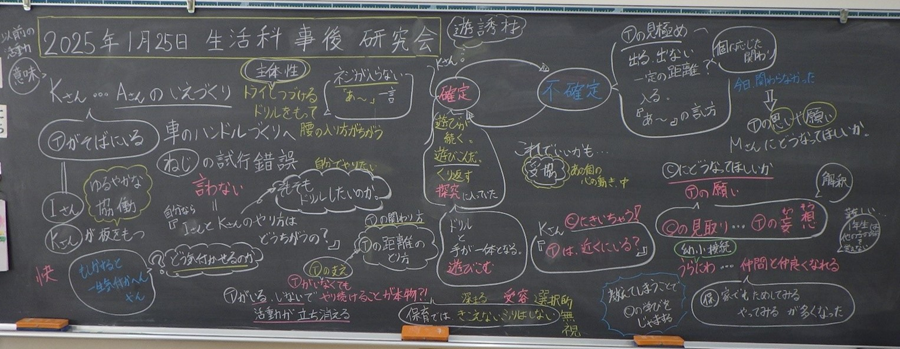 2025年1月25日 生活科 事後 研究会
以前の
意味
Kさん…Aさんの いえづくり
Ⓣがそばにいる
Iさん
Kさん が板をもつ
ゆるやかな
協働
快
主体性
トライしつづける
ドリルをもって
車のハンドルづくりへ 腰の入り方がちがう
ねじの試行錯誤
言わない
自分でやりたい
そもそも
ドリルしたいのか。
自分なら
『IさんとKさんのやり方は
どうちがうの?』
どう気付かせるのか
もしかすると
一生気付かへん
やん
ネジが入らない
「あ〜」一言
Ⓣの関わり方
Ⓣの距離の
とり方
Ⓣの支え
Ⓣがいなくても
Ⓣがいる、いないで やり続けることが本物?!
活動が立ち消える
遊誘材
Kさん
確定
不確定
遊びが
続く。
遊びこんだ。
くり返す
探究に入っていた
ドリル
手が一体となる。
遊びこむ
受容 選択的
無視
保育では きこえないふりはしない
これでいいかも…
妥協
あの個の
心の動き、中
Kさん
Ⓒにきいちゃう!
Ⓣは、近くにいる?
Ⓣの見極め
出る、出ない
一定の距離?
入る。
『あ〜』の言い方
個に応じた
関わり
今日、関わらなかった
Ⓣの思いや願い
Mさんにどうなってほしいか。
Ⓒにどうなってほしいか
Ⓣの願い
解釈
Ⓒの見取り…Ⓣの妄想
難しい…
1年生
幼小接続
うらじわ… 仲間と仲良くなれる
Ⓒの学びを
じゃまする
家でもためしてみる
やってみる が多くなった